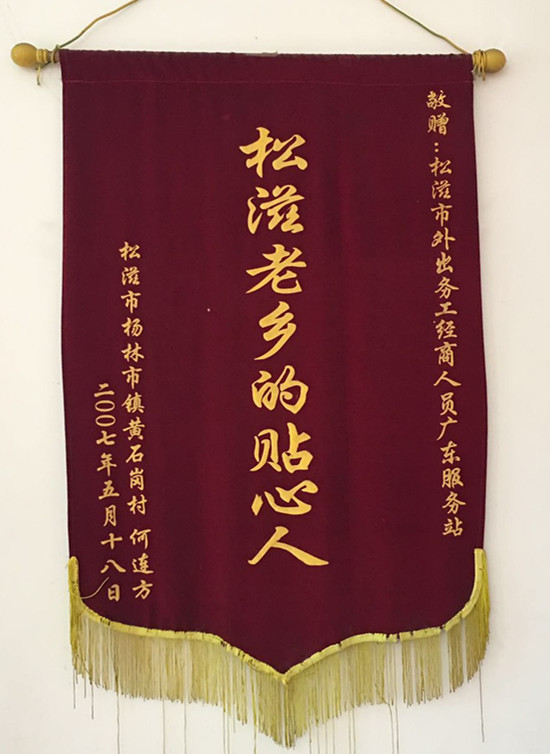 敬赠：松滋市外出务工经商人员广东服务站
松滋老乡的贴心人
松滋市杨林市镇黄石岗村 何连方
二00七年五月十八日